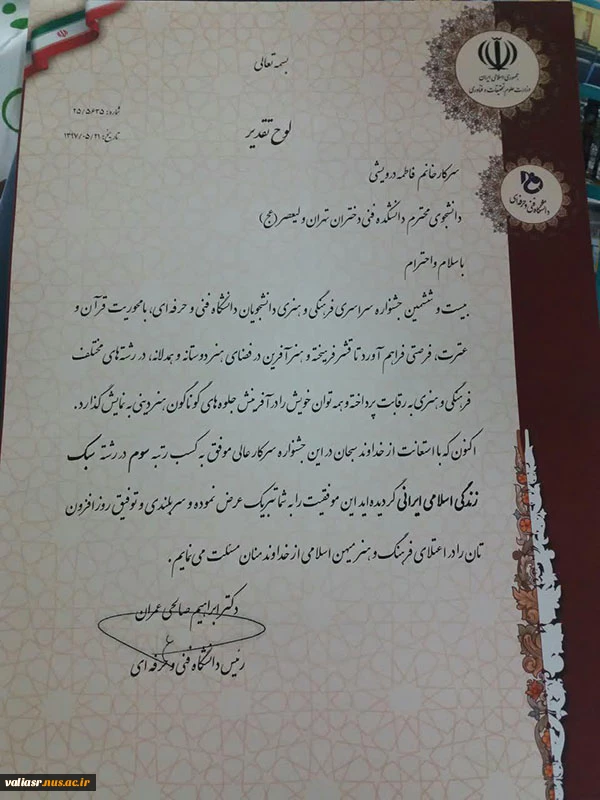 جمهوری اسلامی ایران
وزارت علوم، تحقیقات و فناوری
دانشگاه فنی و حرفه‌ای
بسمه تعالی
شماره: ۲۵/۵۶۲۵
تاریخ: ۱۳۹۷/۰۵/۲۱
لوح تقدیر
سرکار خانم فاطمه درویشی
دانشجوی محترم دانشکده فنی دختران تهران ولیعصر (عج)
با سلام و احترام
بیست و ششمین جشنواره سراسری فرهنگی و هنری دانشجویان دانشگاه فنی و حرفه ای، با محوریت قرآن و
عترت، فرصتی فراهم آورد تا قشر فریخته و هنرآفرین در فضای هنر دوستانه و همدلانه، در رشته‌های مختلف
فرهنگی و هنری به رقابت پرداخته و همه توان خویش را در آفرینش جلوه‌های گوناگون هنر دینی به نمایش گذارد.
اکنون که با استعانت از خداوند سبحان در این جشنواره سرکار عالی موفق به کسب رتبه سوم در رشته سبک
زندگی اسلامی ایرانی گردیده‌اید این موفقیت را به شما تبریک عرض نموده و سربلندی و توفیق روز افزون
تان را در اعتلای فرهنگ و هنر میهن اسلامی از خداوند منان مسئلت می نمایم.
دکتر ابراهیم صالحی عمران
رئیس دانشگاه فنی و حرفه ای
valiasr.nus.ac.ir